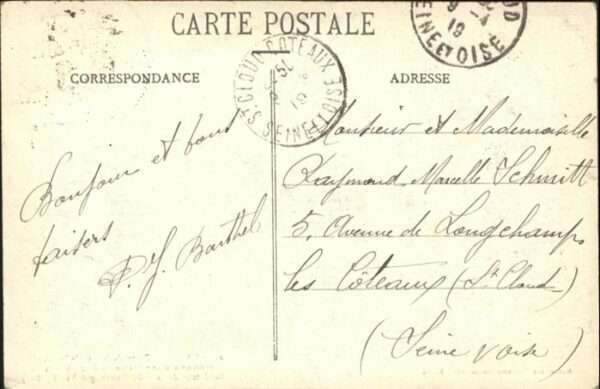 CARTE POSTALE
CORRESPONDANCE
ADRESSE
ST CLOUD COTEAUX
SEINE ET OISE
SEINE ET OISE
19
Bonjour et bons
baisers
P. J. Barthel
Monsieur et Mademoiselle
Raymond Marcelle Schmitt
5, Avenue de Longchamp
les Côteaux (St Cloud)
(Seine & Oise)